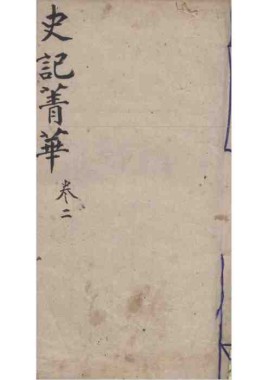 史記菁華
卷二